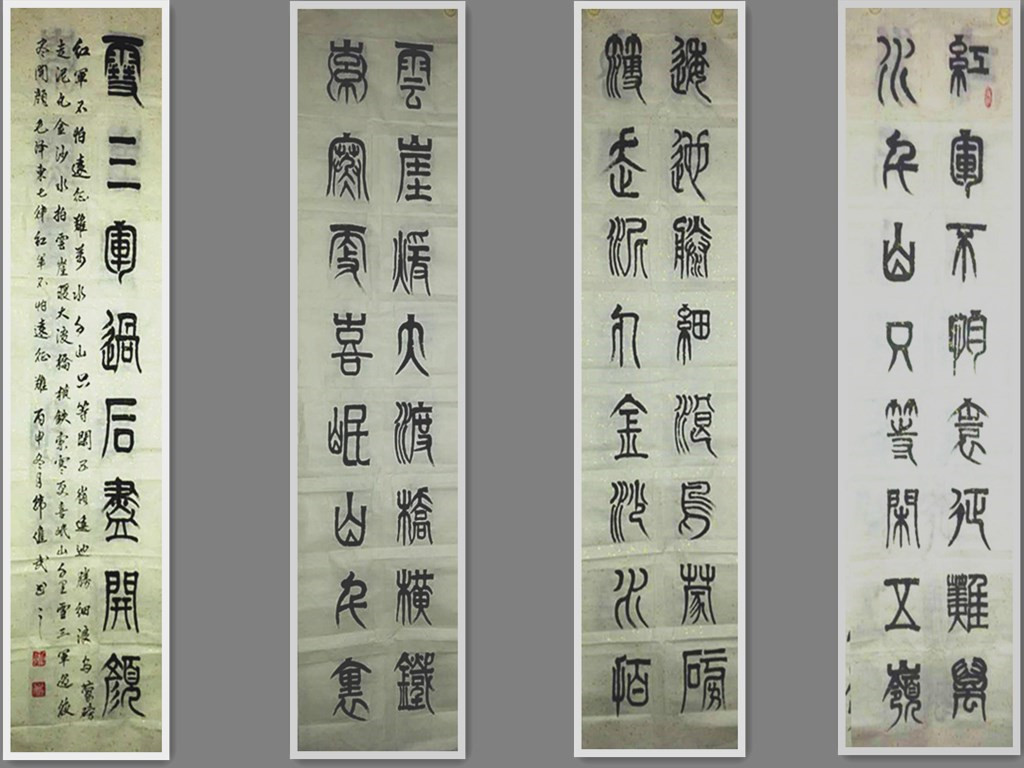 紅軍不怕遠征難萬
水千山只等閑五嶺
逶迤騰細浪烏蒙磅
礴走泥丸金沙水拍
雲崖暖大渡橋橫鐵
索寒更喜岷山千裏
雪三軍過后盡開顏
紅軍不怕遠征難萬水千山只等閑五嶺逶迤騰細浪烏蒙磅礴
走泥丸金沙水拍雲崖暖大渡橋橫鉄索寒更喜岷山千里雪三軍過後
盡開顏毛泽東七律紅軍不怕遠征難 丙申冬月